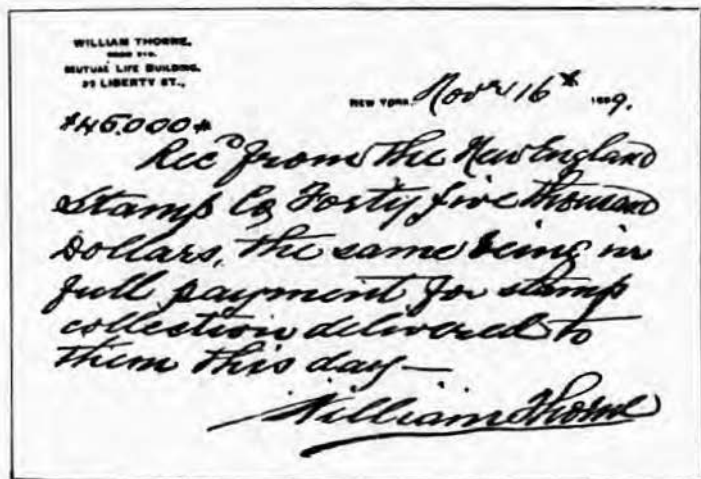 WILLIAM THORNE,
MUTUAL LIFE BUILDING,
LIBERTY ST.,
NEW YORK, Novr 16th 1899.
$45.000
Recd from the New England
Stamp Co Forty five thousand
Dollars, the same being in
full payment for stamp
collection delivered to
them this day—
William Thorne